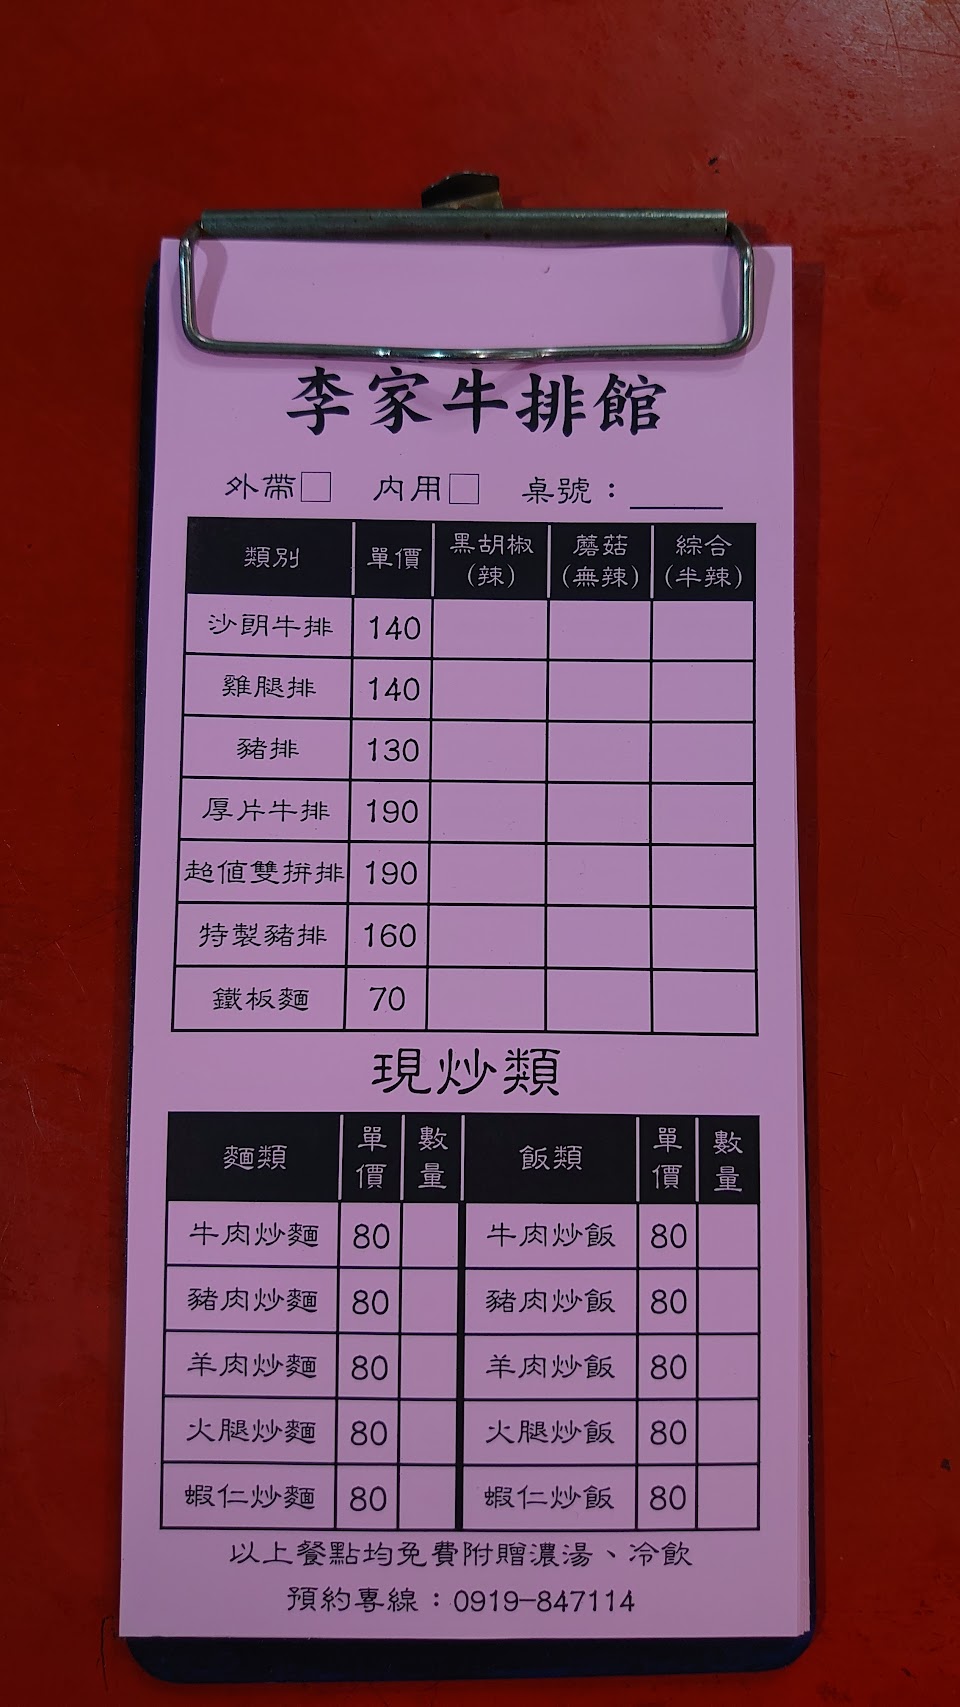 李家牛排館
外帶□ 內用□ 桌號：____
類別 單價 黑胡椒(辣) 蘑菇(無辣) 綜合(半辣)
沙朗牛排 140
雞腿排 140
豬排 130
厚片牛排 190
超值雙拼排 190
特製豬排 160
鐵板麵 70
現炒類
麵類 單價 數量 飯類 單價 數量
牛肉炒麵 80 牛肉炒飯 80
豬肉炒麵 80 豬肉炒飯 80
羊肉炒麵 80 羊肉炒飯 80
火腿炒麵 80 火腿炒飯 80
蝦仁炒麵 80 蝦仁炒飯 80
以上餐點均免費附贈濃湯、冷飲
預約專線：0919-847114